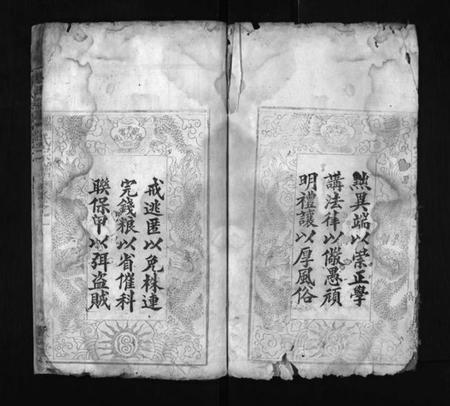 黜異端以崇正學
講法律以儆愚頑
明禮讓以厚風俗
戒逃匿以免株連
完錢粮以省催科
聯保甲以弭盗賊